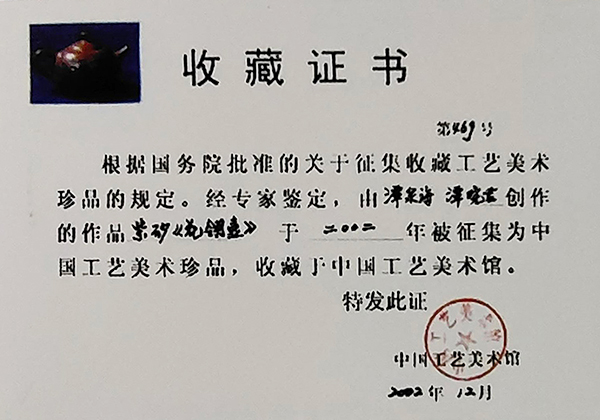 收藏证书
第469号
根据国务院批准的关于征集收藏工艺美术
珍品的规定。经专家鉴定，由谭泉海 谭创作
的作品紫砂《壶》于 2002 年被征集为中
国工艺美术珍品，收藏于中国工艺美术馆。
特发此证
中国工艺美术馆
2002年12月